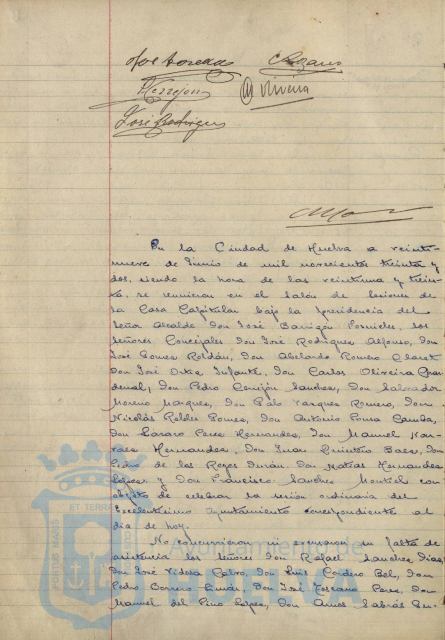 José Rodriguez
Oliveira
En la Ciudad de Huelva a veinti-
nueve de Junio de mil novecientos treinta y
dos, siendo la hora de las veintiuna y trein-
ta, se reunieron en el salón de sesiones de
la Casa Capitular bajo la presidencia del
Señor Alcalde Don José Barrigón Fornieles, los
señores Concejales Don José Rodriguez Alfonso, Don
José Ponce Roldán, Don Abelardo Romero Claret,
Don José Ortiz Infante, Don Carlos Oliveira
Don Pedro Cerrejón Sanchez, Don Salvador
Moreno Marquez, Don Pablo Vazquez Romero, Don
Nicolás Robles Gomez, Don Antonio Pousa Camba,
Don Lazaro Perez Hernandez, Don Manuel Nar-
vaez Hernandez, Don Juan Quintero Baez, Don
Pedro de los Reyes Durán, Don Matías Hernandez
López y Don Francisco Sanchez Montiel con
objeto de celebrar la sesión ordinaria del
Excelentisimo Ayuntamiento correspondiente al
día de hoy.
No concurrieron ni excusaron su falta de
asistencia los señores Don Rafael Sanchez Diaz,
Don José Vidosa Calvo, Don Luis Cordero Bel, Don
Pedro Borrero Limón, Don José Toscano Perez, Don
Manuel del Pino López, Don Amos Sabrás
PORTUS MARIS ET TERRAE
Ayuntamiento de
HUELVA